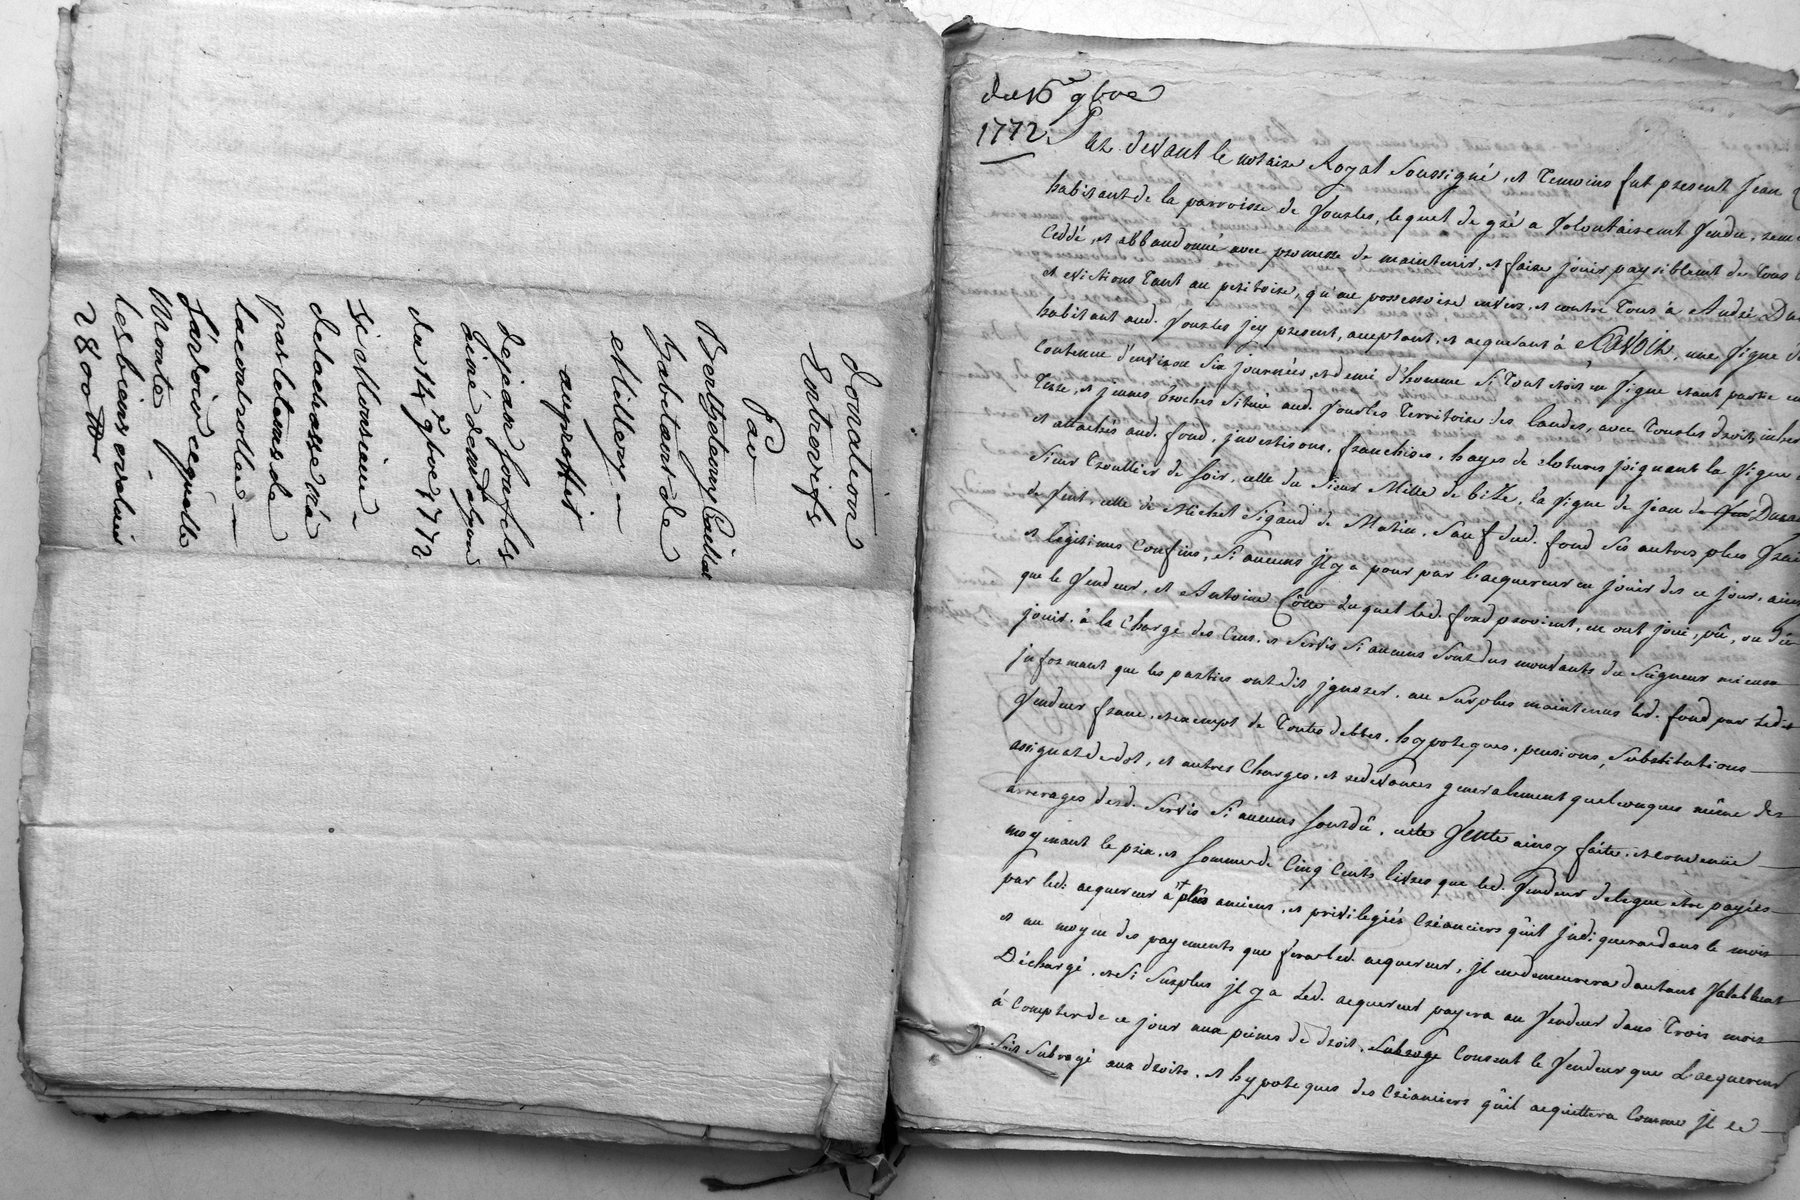 donation
Entrevifs
Par
Berthelemy Caillat
habitant de
Millery
au proffit
de jean
ainé
du 14 9bre 1772
Sieur Monsieur
de lachasse
par le temps de
la controlle
Laroie
monte
les biens evalués
2800 ₶
du 15e 9bre
1772
Par devant le notaire Royal Soussigné, et Temoins fut present Jean
habitant de la parroisse de Vourles, lequel de gré a Volontairemt Vendu,
Ceddé, et abbandonné avec promesse de maintenir, et faire jouir paysiblemt de Tous
et evictions Tant au petitoire, qu'au possessoire envers, et contre Tous à André
habitant aud. Vourles jcy present, acceptant, et acquerant à Savoir, une Vigne
Contenue d'environ Six journées, et demi d'homme Si Tout etoit en Vigne etant partie en
Terre, et jeunes broches Située aud. Vourles Territoire des Landes, avec Tous les droits
et attachés aud. fond, jnvestisons, franchises, hayes de clotures joignant la Vigne
Sieur de Soir, celle du Sieur Mille de bize, la Vigne de jean
de Vent, celle de Michel Sigaud de Matin, Sauf dud. fond Ses autres plus Vrais
et legitimes Confins, Si aucuns Jl y a pour par l'acquereur en jouir des ce jour, ainsy
que le Vendeur, et Antoine Côte duquel led. fond provient, en ont joui, pû, ou dû
jouir, à la Charge des Cens, et Servis Si aucuns Sont dus mouvants du Seigneur mieux
jnformant que les parties ont dit jgnorer, au Surplus maintenus led. fond par Ledit
Vendeur franc, et exempt de Toutes debtes, hypoteques, pensions, Substitutions
assignat de dot, et autres Charges, et redevances generalement quelconques même des
arrerages desd. Servis Si aucuns Sont dû, cette Vente ainsy faite, et convenue
moyenant le prix, et Somme de Cinq Cents livres que led. Vendeur delegue etre payées
par led. acquereur à plus anciens, et privilegiés Créanciers qu'il jndiquera dans le mois
et au moyen des payements que fera led. acquereur, jl en demeurera d'autant Valablemt
Déchargé, et Si Surplus jl y a Led. acquereur payera au Vendeur dans Trois mois
à Compter de ce jour aux peines de droit, Subroge Consent le Vendeur que L'acquereur
Soit Subrogé aux droits, et hypoteques des Créanciers qu'il acquittera Comme Jl